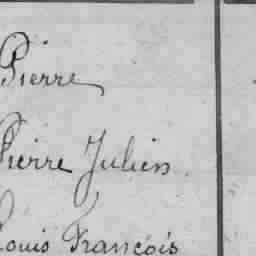 Pierre
Pierre Julien
Louis François